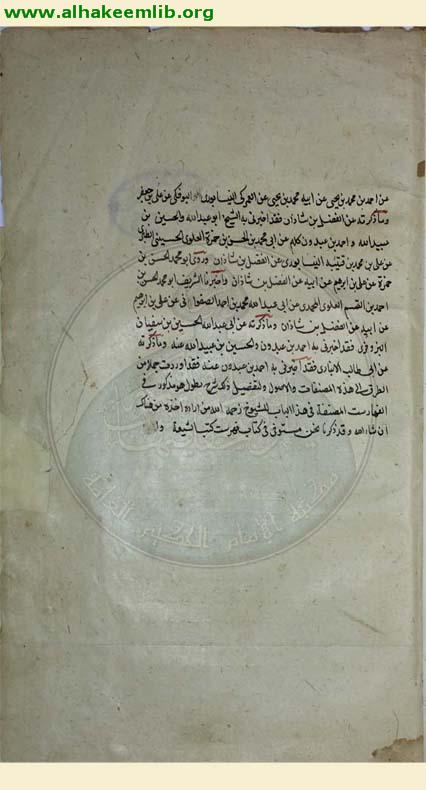 www.alhakeemlib.org
عن احمد بن محمد بن يحيى عن ابيه محمد بن يحيى عن العمركى النيسابورى البوفكى عن على بن جعفر
وما ذكرته عن الفضل بن شاذان فقد اخبرنى به الشيخ ابو عبد الله والحسين بن
عبيد الله و احمد بن عبدون كلهم عن ابى محمد بن الحسن بن حمزة العلوى الحسينى الطبرى
عن على بن محمد بن قتيبة النيسابورى عن الفضل بن شاذان وروى ابو محمد الحسن بن
حمزة عن على بن ابرهيم عن ابيه عن الفضل بن شاذان واخبرنا الشريف ابو محمد الحسن بن
احمد بن القسم العلوى المحمدى عن ابى عبد الله محمد بن احمد الصفوانى عن على بن ابرهيم
عن ابيه عن الفضل بن شاذان وما ذكرته عن ابى عبد الله الحسين بن سفيان
البزوفرى فقد اخبرنى به احمد بن عبدون والحسين بن عبيد الله عنه وما ذكرته
عن ابى طالب الانبارى فقد اخبرنى به احمد بن عبدون عنه فقد اوردت جملا من
الطرق الى هذه المصنفات والاصول ولتفصيل ذلك شرح يطول هو مذكور فى
الفهارست المصنفة فى هذا الباب للشيوخ رحمهم الله من اراده اخذه من هناك
ان شاء الله وقد ذكرنا نحن مستوفى فى كتاب فهرست كتب الشيعة